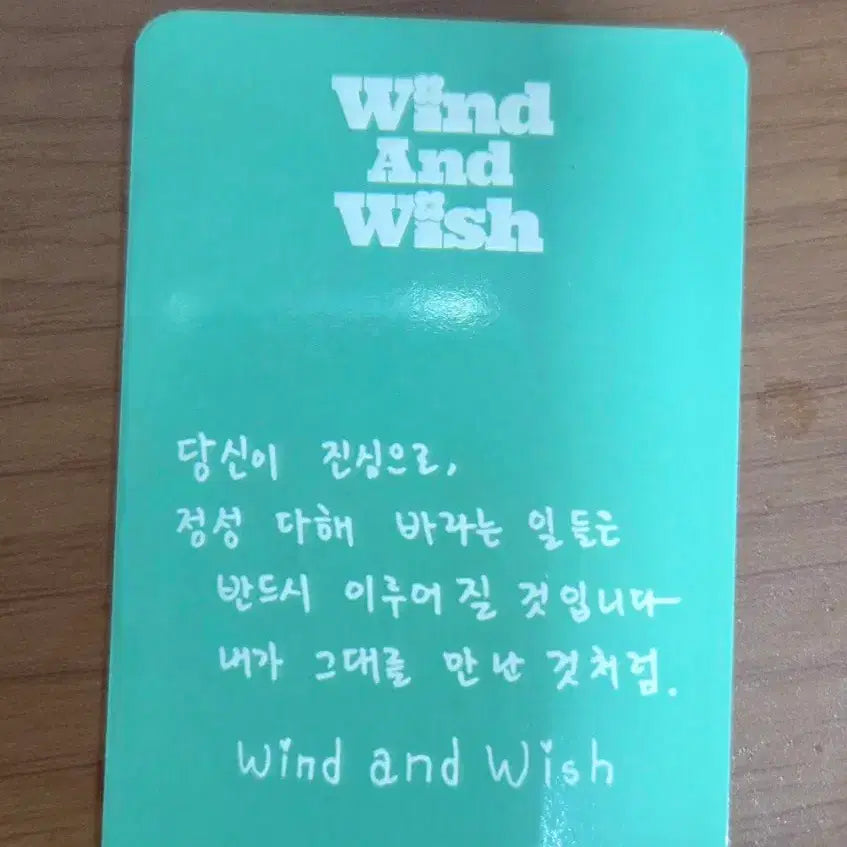 Wind
And
Wish
당신이 진심으로,
정성 다해 바라는 일들은
반드시 이루어질 것입니다
내가 그대를 만난 것처럼.
Wind and Wish